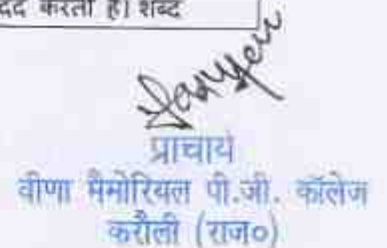 करती है। शब्द
प्राचार्य
वीणा मैमोरियल पी.जी. कॉलेज
करौली (राज०)